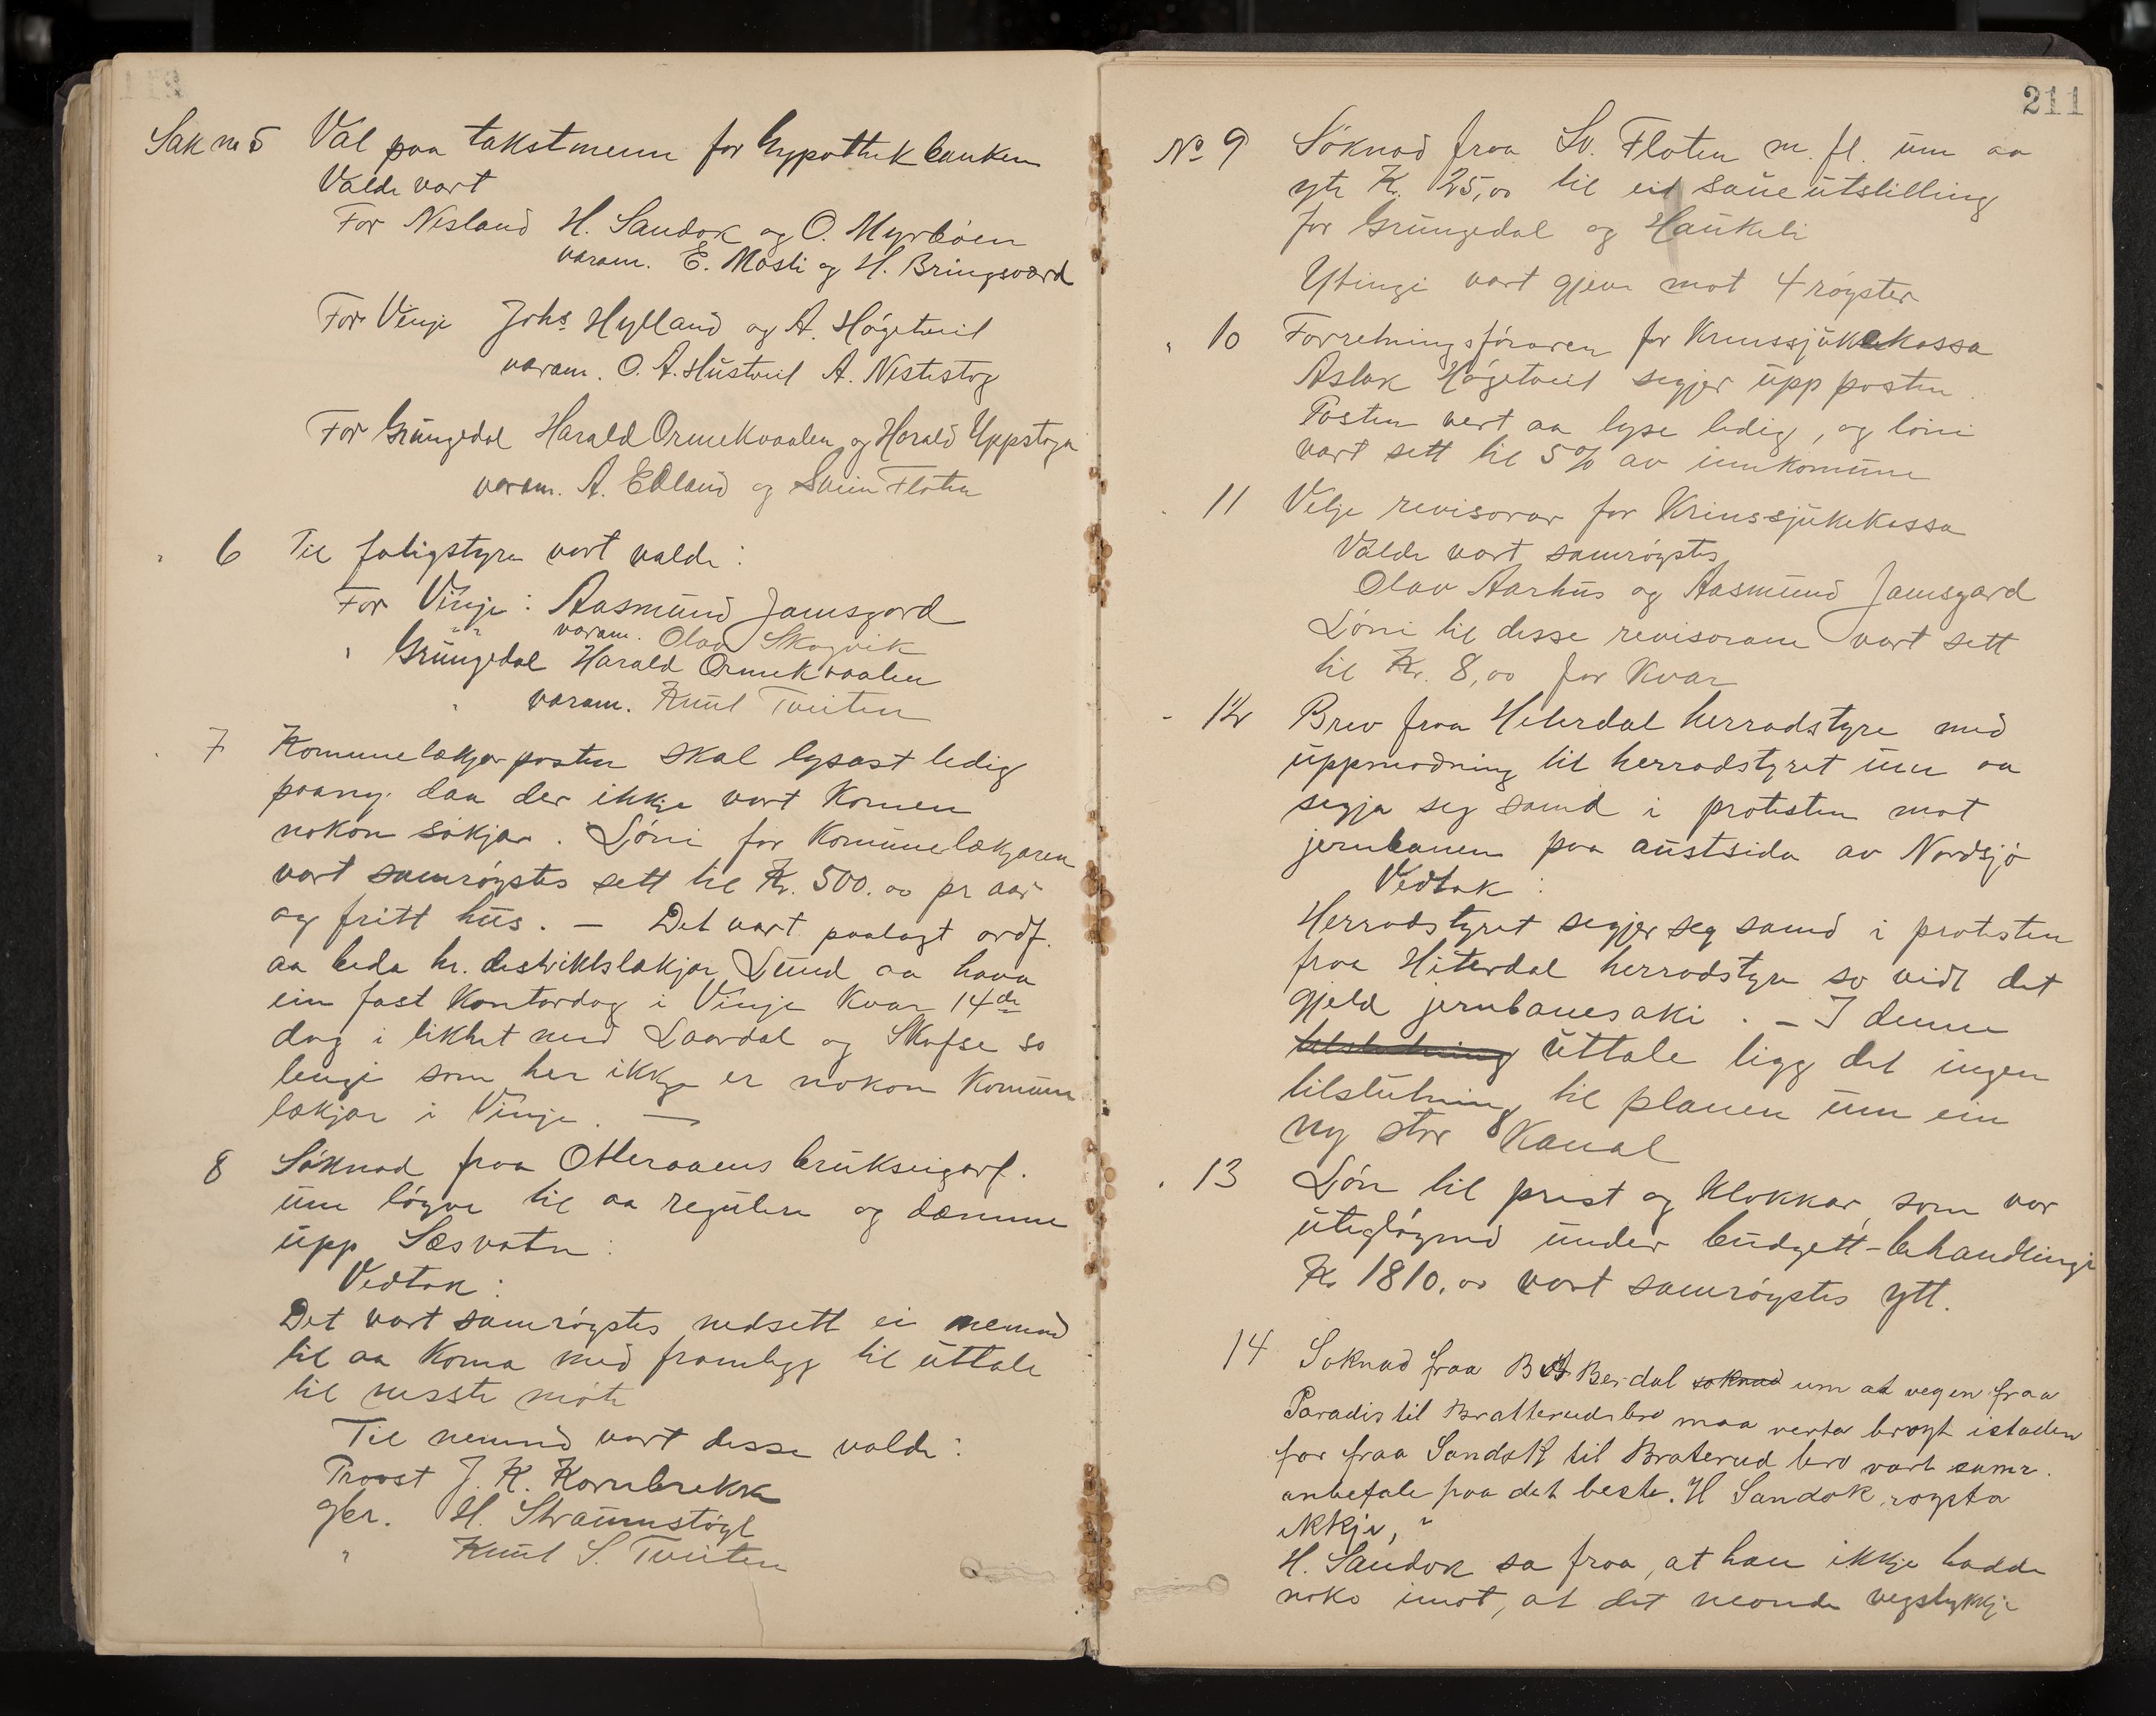 Sak no 5 Val paa takstmenn for hypothekbanken
Valde vart
For Nesland H. Sandok og O. Myrbóen
varam. E. Mosli og H. Bringsværd
For Vinje Johs Hylland og A. Högetveit
varam. O. A. Hustveit A. Nestestog
For Grungedal Harald Ormekvaalen og Harald Uppstoga
varam. A. Edland og Svein Flaten
6 Til faligstyre vart valde:
For Vinje: Aasmund Jamsgard
varam. Olav Skogvik
" Grungedal Harald Ormekvaalen
" varam. Knut Tveiten
7 Komunelækjarposten skal lysast ledig
paany daa der ikkje vart komen
nokon sökjar. Löni for Komunelækjaren
vart samröystes sett til Kr. 500.00 pr aar
og fritt hus. — Det vart paalagt ordf.
aa beda hr. distriktslækjar Lund aa hava
ein fast kontordag i Vinje kvar 14de
dag i likhet med Laardal og Skafse so
lengi som her ikkje er nokon Komune
lækjar i Vinje. —
8 Söknad fraa Otteraaens brukseigarf.
um löyve til aa regulere og dæmme
upp Sæsvatn:
Vedtak:
Det vart samröystes nedsett ei nemnd
til aa koma med framlegg til uttale
til neste möte
Til nemnd vart desse valde:
Provst J. K. Kornbrekke
gbr. H. Straumstöyl
" Knut S. Tveiten
211
No 9 Söknad fraa Sv. Flaten m. fl. um aa
yte Kr. 25,00 til ei saueutstilling
for Grungedal og Haukeli
Ytingi vart gjeve mot 4 röyster
" 10 Forretningsföraren for Krinssjukekassa
Aslak Högetveit segjer upp posten.
Posten vert aa lyse ledig, og löni
vart sett til 5 % av innkomune
11 Velje revisorar for Krinssjukekassa
Valde vart samröystes
Olav Aarhus og Aasmund Jamsgard
Löni til desse revisorane vart sett
til Kr. 8,00 for kvar
- 12 Brev fraa Hiterdal herradstyre med
uppmodning til herradstyret um aa
segja seg samd i protesten mot
jernbanen paa austsida av Nordsjö
Vedtak:
Herradstyret segjer seg samd i protesten
fraa Hiterdal herradstyre so vidt det
gjeld jernbanesaki. — I denne
tilslutning uttale ligg det ingen
tilslutning til planen um ein
ny stor Kanal
13 Lön til prest og klokkar som var
utegløymd under budgett-behandlingi
Kr 1810,00 vart samröystes ytt.
14 Soknad fraa B Berdal soknad um at vegen fraa
Paradis til Bratterudsbro maa verta broyt istaden
for fraa Sandok til Braterud bro vart samr.
anbefale paa det beste. H Sandok roysta
ikkje, "
H. Sandok sa fraa, at han ikkje hadde
noko imot, at det nemnde vegstykkje